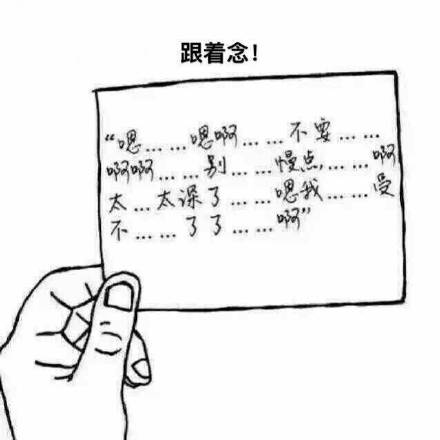 跟着念!
“嗯……嗯啊……不要……
啊啊……别……慢点……啊
太…太深了……嗯我……受
不……了了……啊”